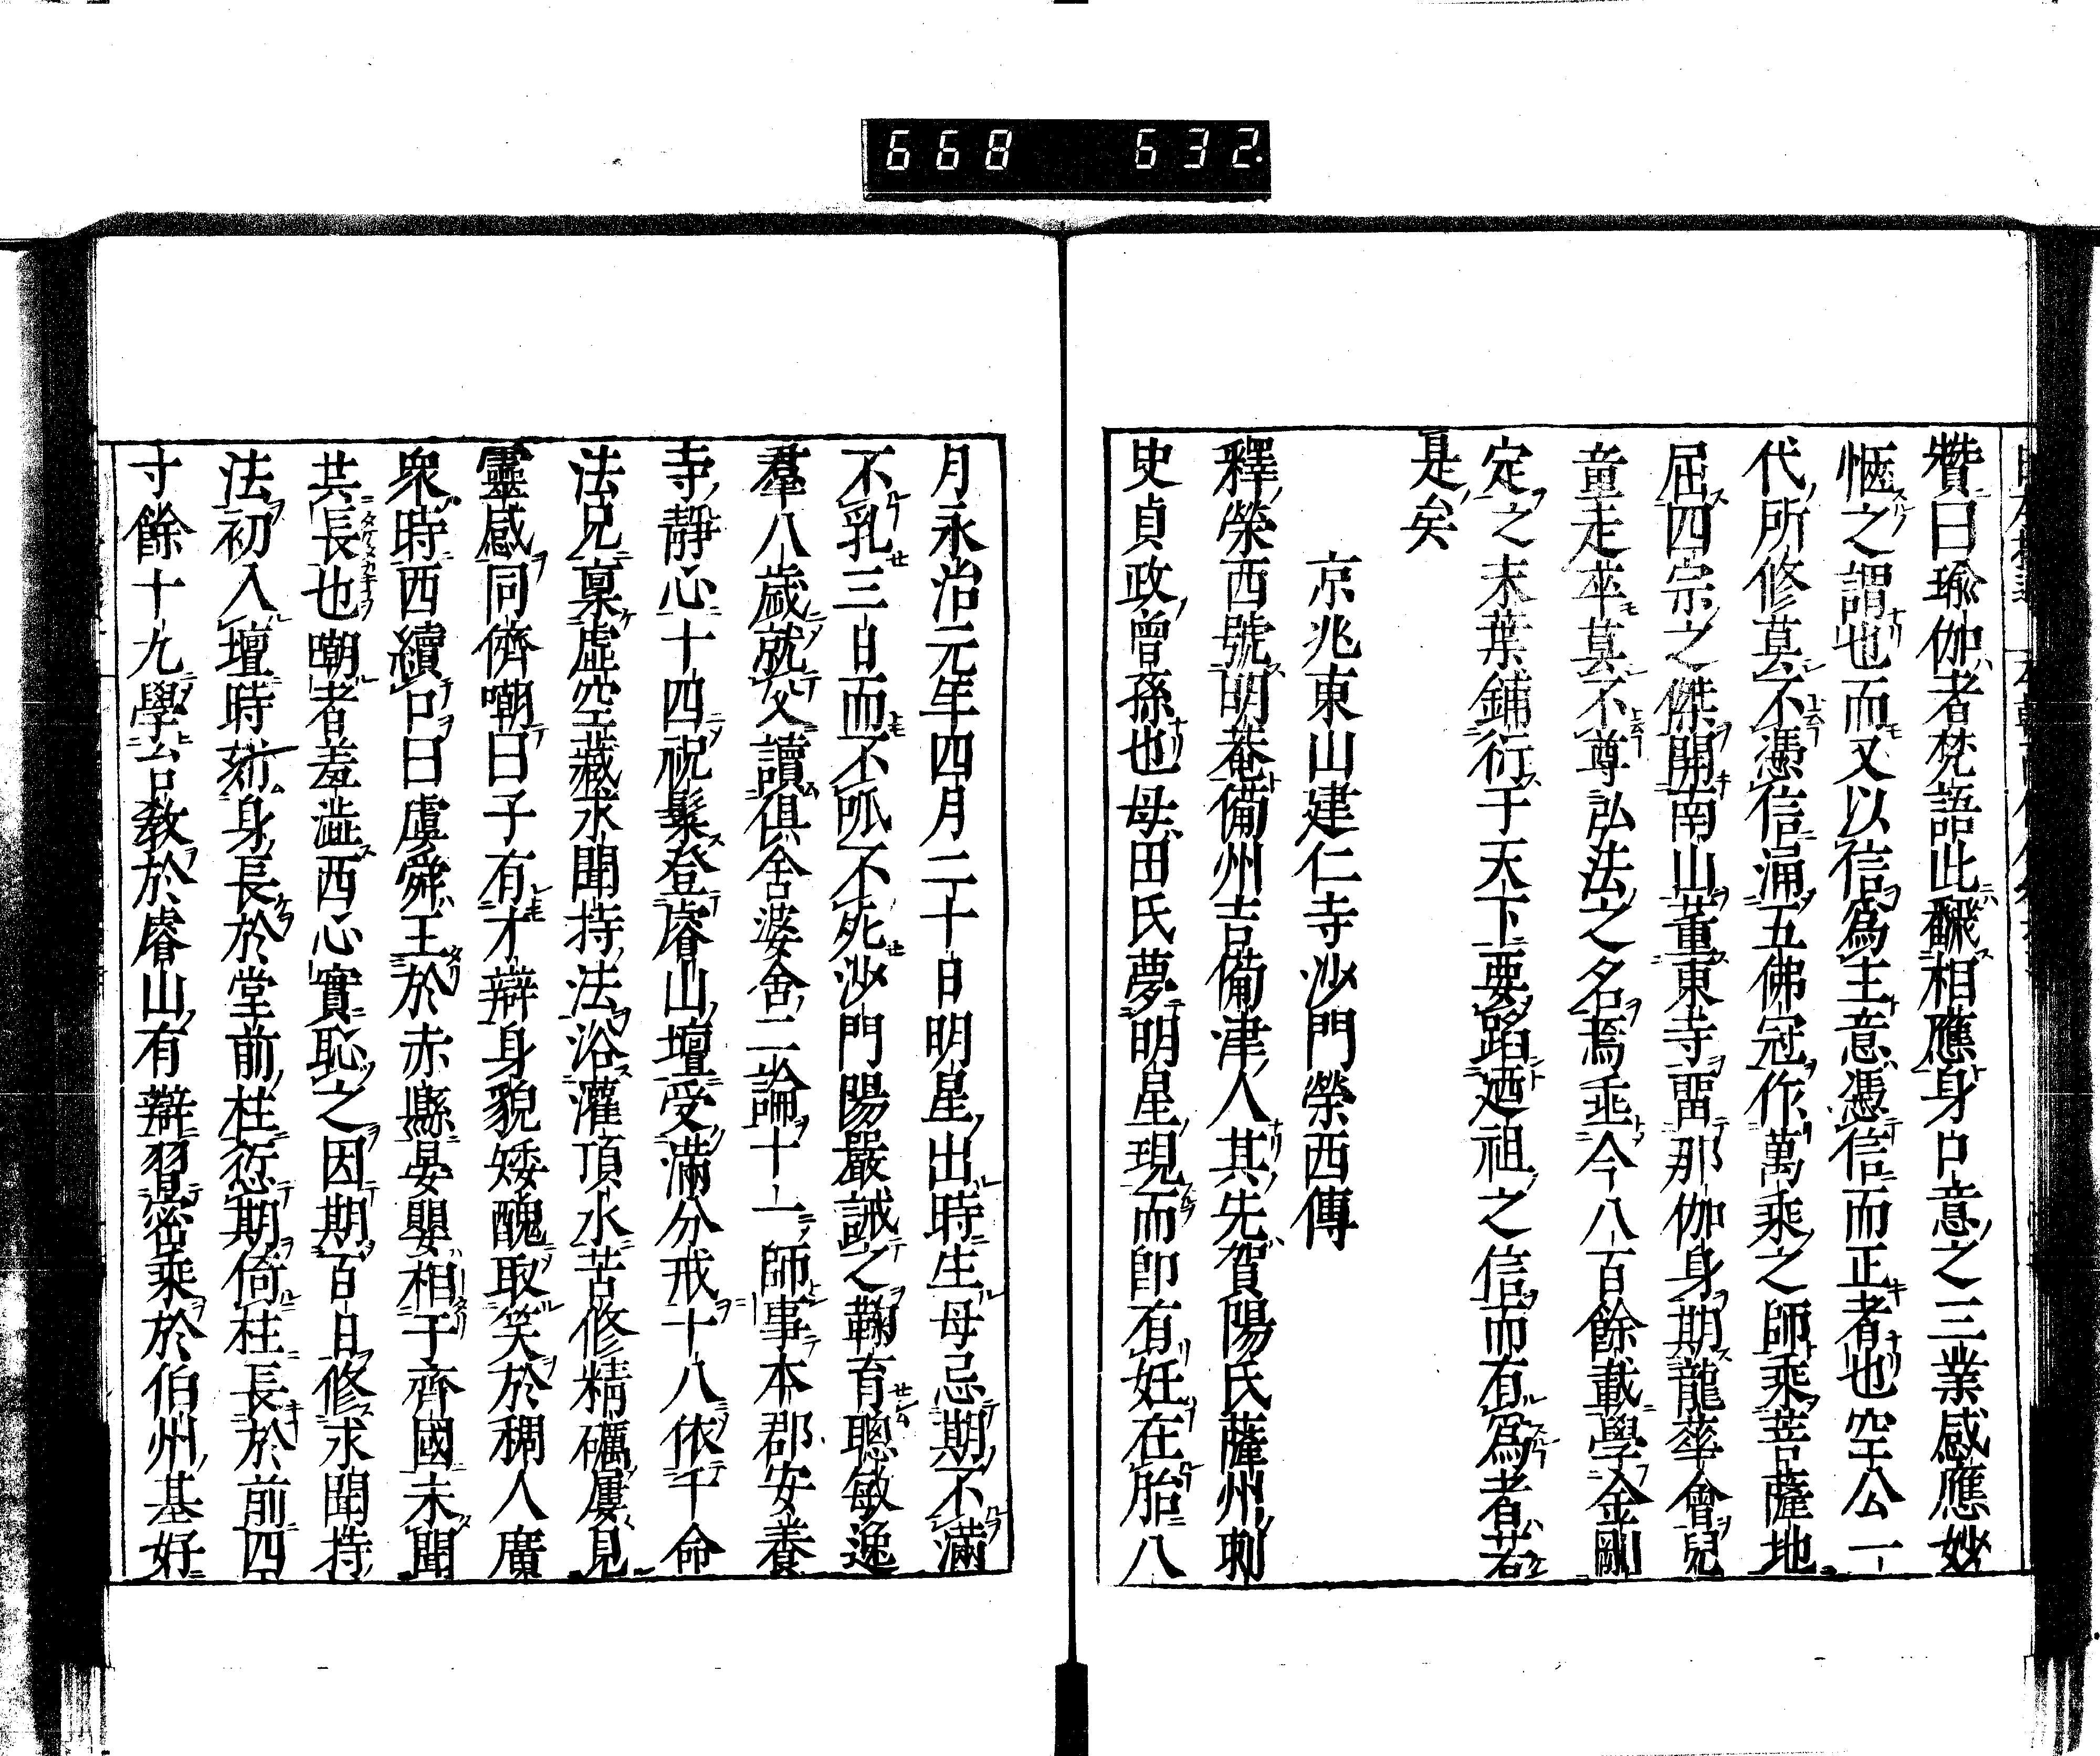 668 632
贊曰瑜伽者梵語此飜相應身口意之三業感應妙
愜之謂也而又以信爲主意憑信而正者也空公一
代所修莫不憑信涌五佛冠作萬乘之師乘菩薩地
屈四宗之傑開南山董東寺畱那伽身期龍華會兒
童走卒莫不尊弘法之名焉垂今八百餘載學金剛
定之末葉鋪衍于天下要蹈廼祖之信而有爲者若
是矣
京兆東山建仁寺沙門榮西傳
釋榮西號明菴備州吉備津人其先賀陽氏薩州刺
史貞政曾孫也母田氏夢明星現而卽有妊在胎八
月永治元年四月二十日明星出時生母忌期不滿
不乳三日而不呱不死沙門陽嚴誡之鞠育聰敏逸
羣八歲就父讀俱舍婆舍二論十一師事本郡安養
寺靜心十四祝髮登睿山壇受滿分戒十八依千命
法兄稟虛空藏求聞持法浴灌頂水苦修精礪屢見
靈感同儕嘲曰子有才辯身貌矮醜取笑於稠人廣
衆時西續口曰虞舜王於赤縣晏嬰相于齊國未聞
其長也嘲者羞澁西心實恥之因期百日修求聞持
法初入壇時刻身長於堂前柱愆期倚柱長於前四
寸餘十九學台敎於睿山有辯習密乘於伯州基好